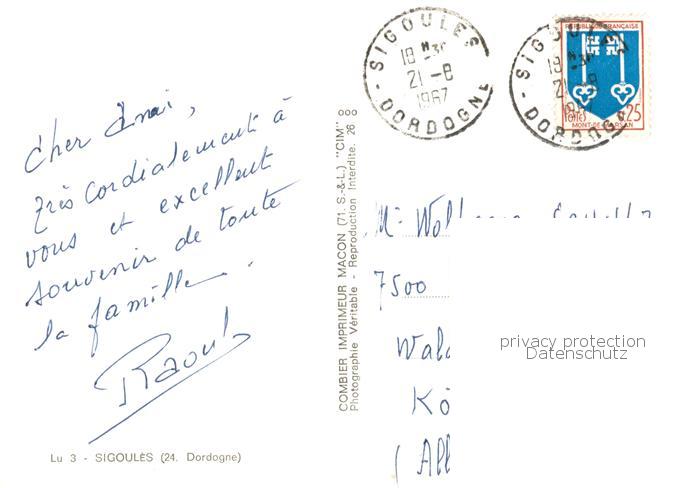 Cher Ami,
très cordialement à
vous et excellent
souvenir de toute
la famille.
Raoul
Lu 3 - SIGOULÈS (24. Dordogne)
COMBIER IMPRIMEUR MACON (71. S.-&-L.) "CIM"
Photographie Véritable - Reproduction Interdite. 26
SIGOULES
18 H 30
21-8
1967
DORDOGNE
SIGOULES
21-8
DORDOGNE
REPUBLIQUE FRANÇAISE
0,25
MONT-DE-MARSAN
Mr
7500
privacy protection
Datenschutz